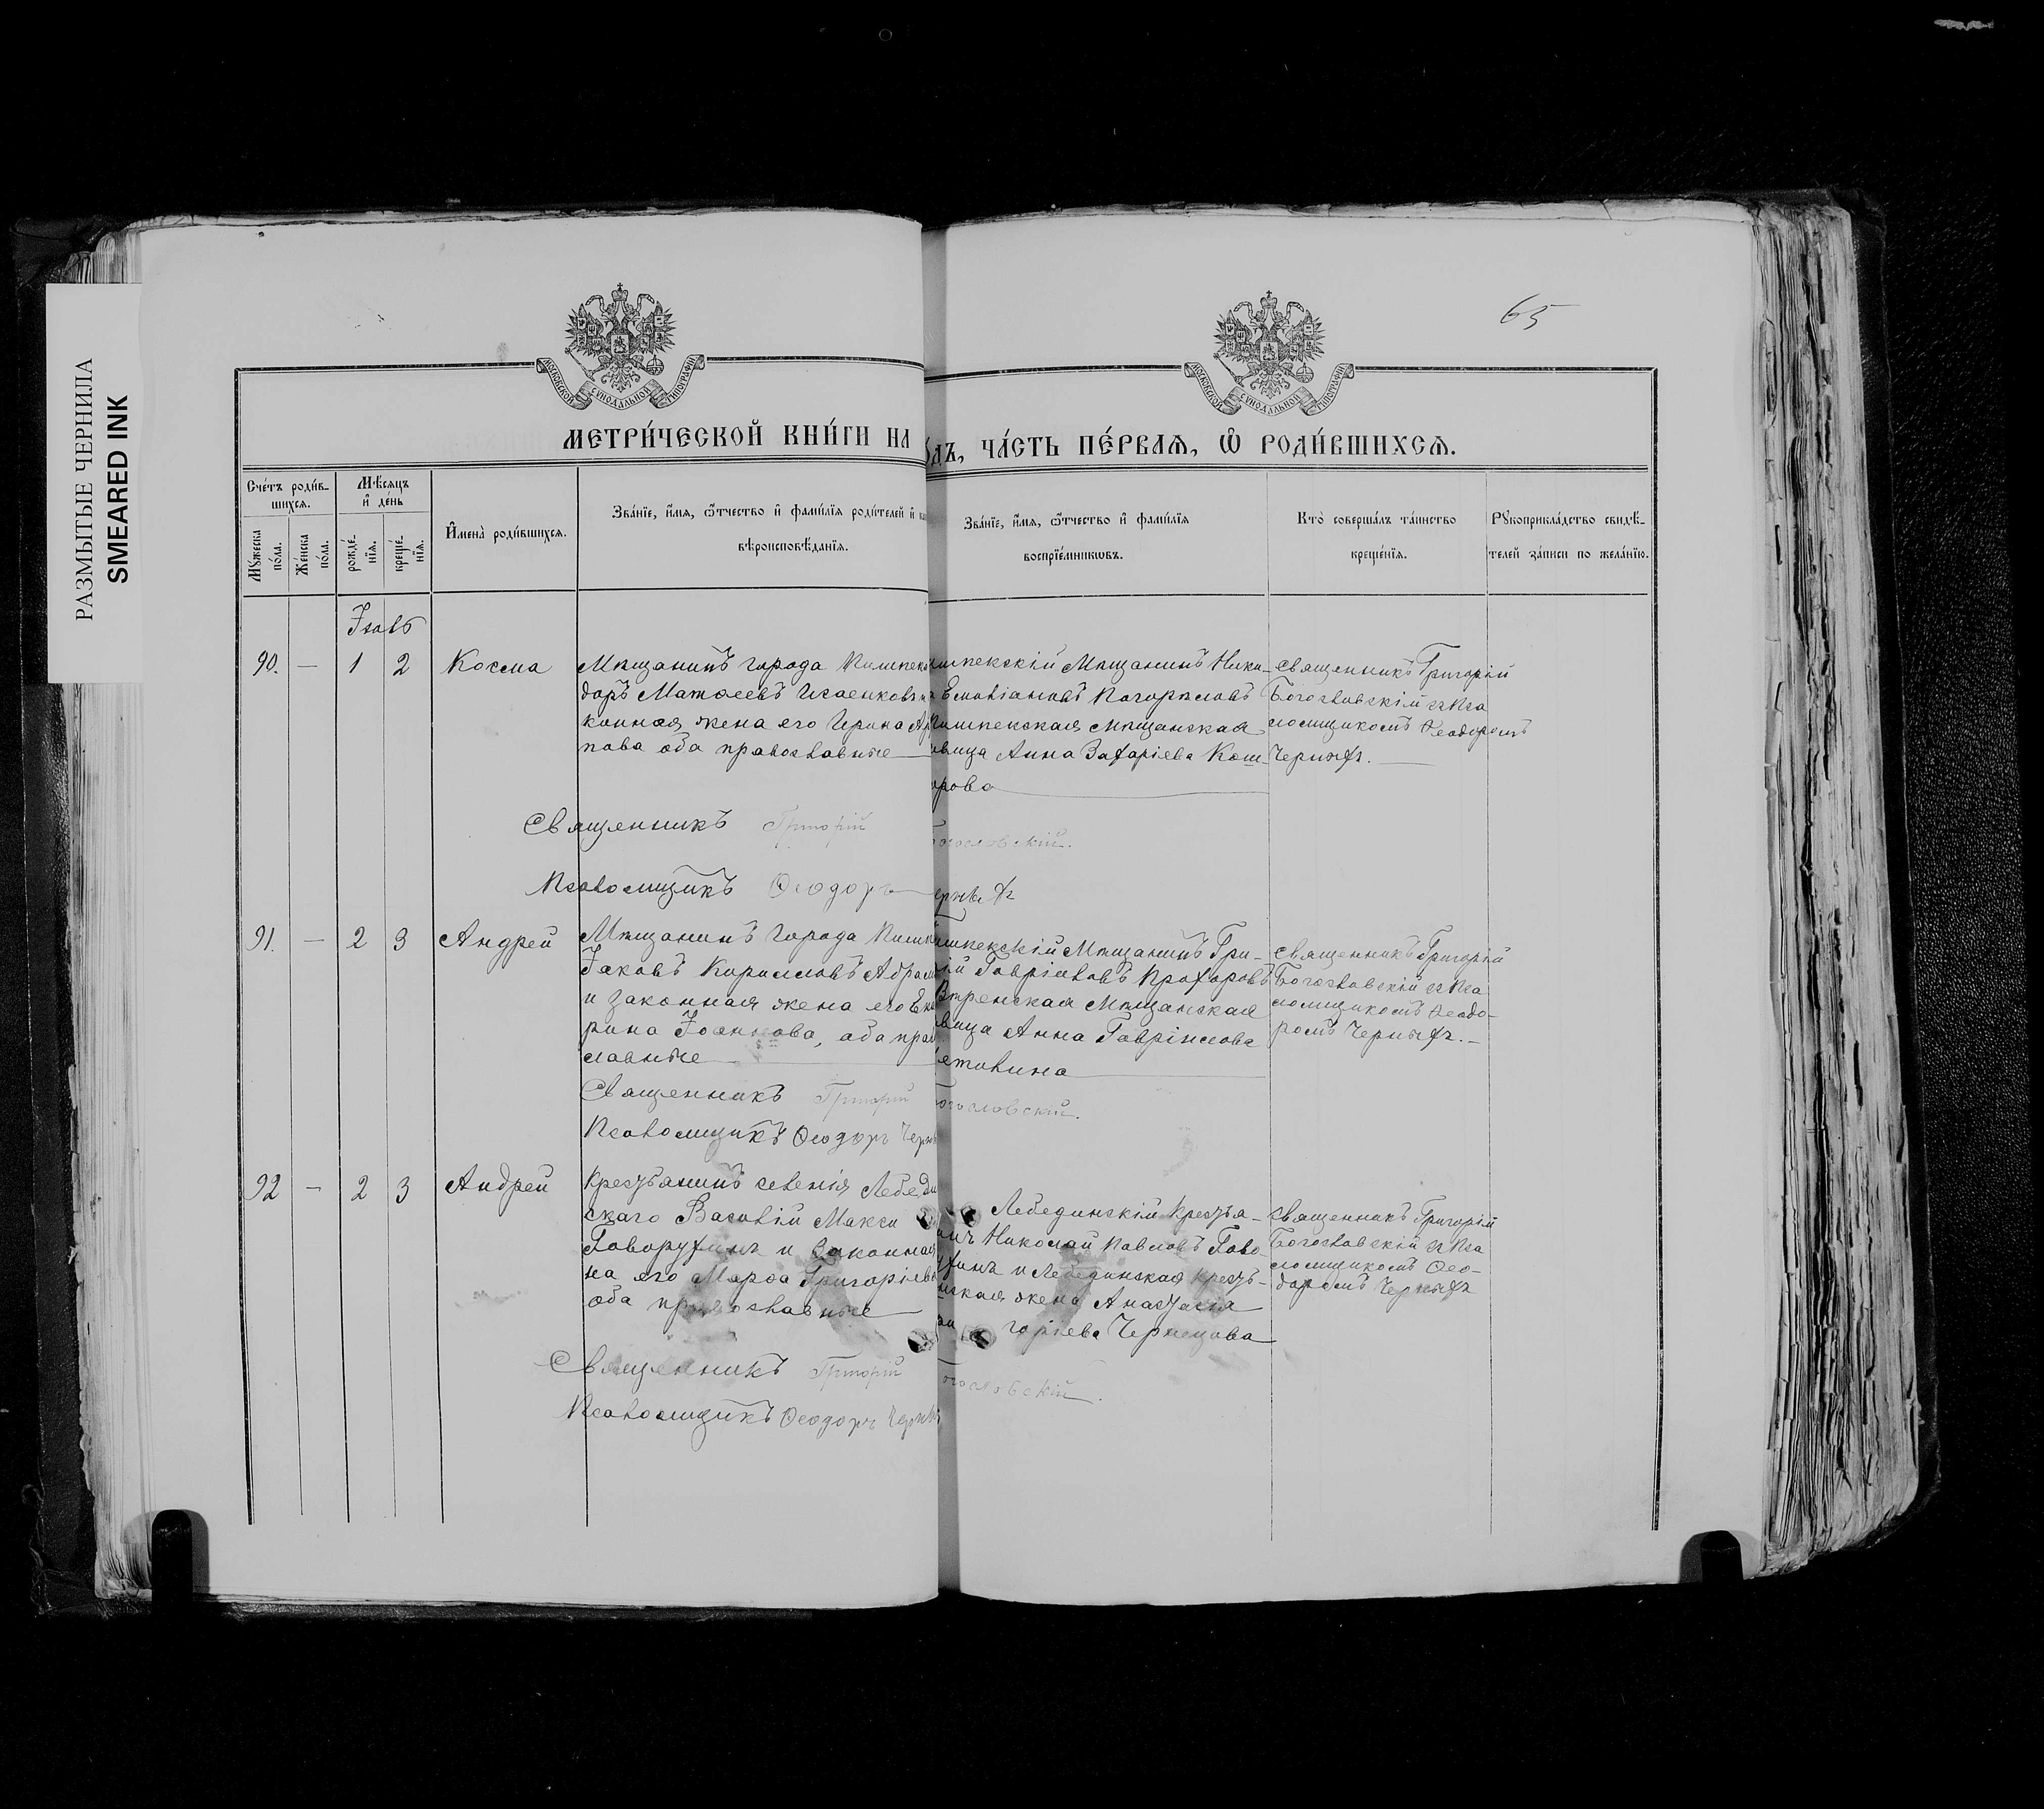 65
РАЗМЫТЫЕ ЧЕРНИЛА
SMEARED INK
МОСКОВСКОЙ СѴНОДАЛЬНОЙ ТИПОГРАФІИ
МОСКОВСКОЙ СѴНОДАЛЬНОЙ ТИПОГРАФІИ
МЕТРИ́ЧЕСКОЙ КНИ́ГИ НА
ДЪ, ЧА́СТЬ ПЕ́РВАѦ, Ѿ РОДИ́ВШИХСѦ.
Сче́тъ роди́в-
шихсѧ.
Мѣ́сѧцъ
и҆ де́нь
Мꙋ́жеска
по́ла.
Же́нска
по́ла.
рожде́-
нїѧ.
креще́-
нїѧ.
И҆мена̀ роди́вшихсѧ.
Зва́нїе, и҆́мѧ, ѻ҆́тчество и҆ фамилїѧ роди́телей и҆
вѣроисповѣ́данїѧ.
Зва́нїе, и҆́мѧ, ѻ҆́тчество и҆ фамилїѧ
воспрїе́мникѡвъ.
Кто̀ соверша́лъ та́инство
креще́нїѧ.
Рꙋкоприкла́дство свидѣ́-
телей за́писи по жела́нїю.
Іюль
90. — 1 2 Косма
Мѣщанинъ города Пишпека
доръ Матѳеевъ Исаенковъ и
конная жена его Ирина
пова оба православные
шпекскій Мѣщанинъ Ники-
Емиліановъ Погорѣловъ
Пишпекская Мѣщанская
вица Анна Захаріева Кош-
рова
священникъ Григорій
Богословскій съ Пса
ломщикомъ Ѳеодоромъ
Черныхъ.
Священникъ Григорій Богословскій.
Псаломщикъ Ѳеодоръ Черныхъ
91. — 2 3 Андрей
Мѣщанинъ города Пишп
Іаковъ Кирилловъ Абрам
и законная жена его Ека
рина Іоаннова, оба прав
славные
шпекскій Мѣщанинъ Гри-
ій Гавріиловъ Прохоровъ
Вѣренская Мѣщанская
вица Анна Гавріилова
священникъ Григорій
Богословскій съ Пса
ломщикомъ Ѳеодо-
ромъ Черныхъ.
Священникъ Григорій Богословскій.
Псаломщикъ Ѳеодоръ Черны
92 — 2 3 Андрей
Крестьянинъ селенія Лебедин
скаго Василій Макси
Говорухинъ и законная
на его Марѳа Григоріева
оба православные
Лебединскій Крестья-
инъ Николай Павловъ Гово-
ухинъ и Лебединская кресть-
нская жена Анастасія
горіева Чернецова
священникъ Григорій
Богословскій съ Пса
ломщикомъ Ѳео-
доромъ Черныхъ
Священникъ Григорій Богословскій.
Псаломщикъ Ѳеодоръ Черны